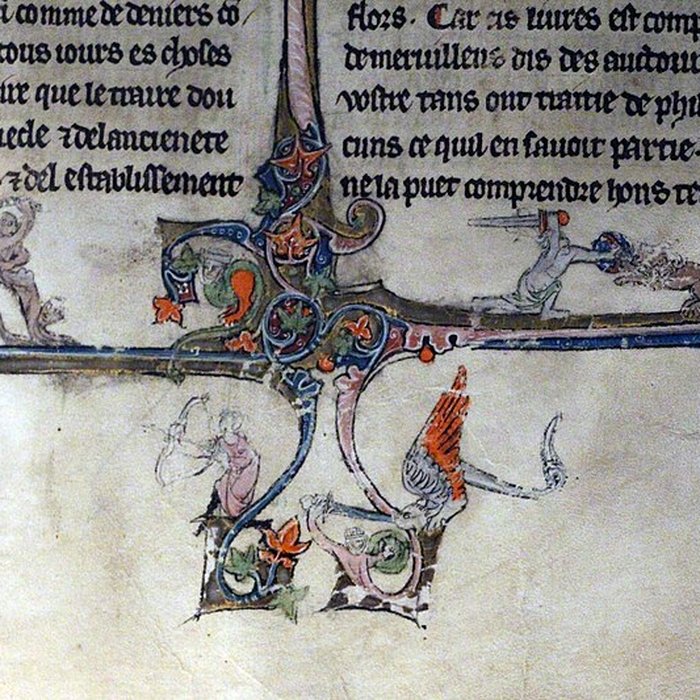 comme de deniers co
tous iours es choses
ire que le traire dou
iecle ⁊ delancienete
⁊ del establissement
flors. Car cis liures est comp
de meruilleus dis des auctour
vostre tans ont traitie de phi
cuns ce quil en sauoit partie.
ne la puet comprendre hons te